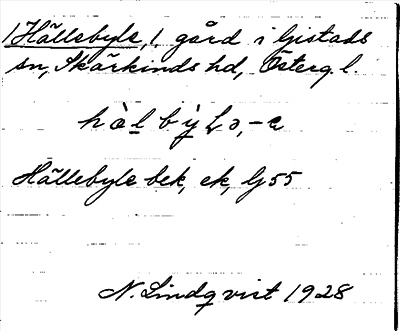 Hällebyle, 1 gård i Gistads
sn, Skärkinds hd, Österg. l.
hàlbỳlə, -a
Hällebyle bek, ek, Gj 55
N. Lindqvist 1928